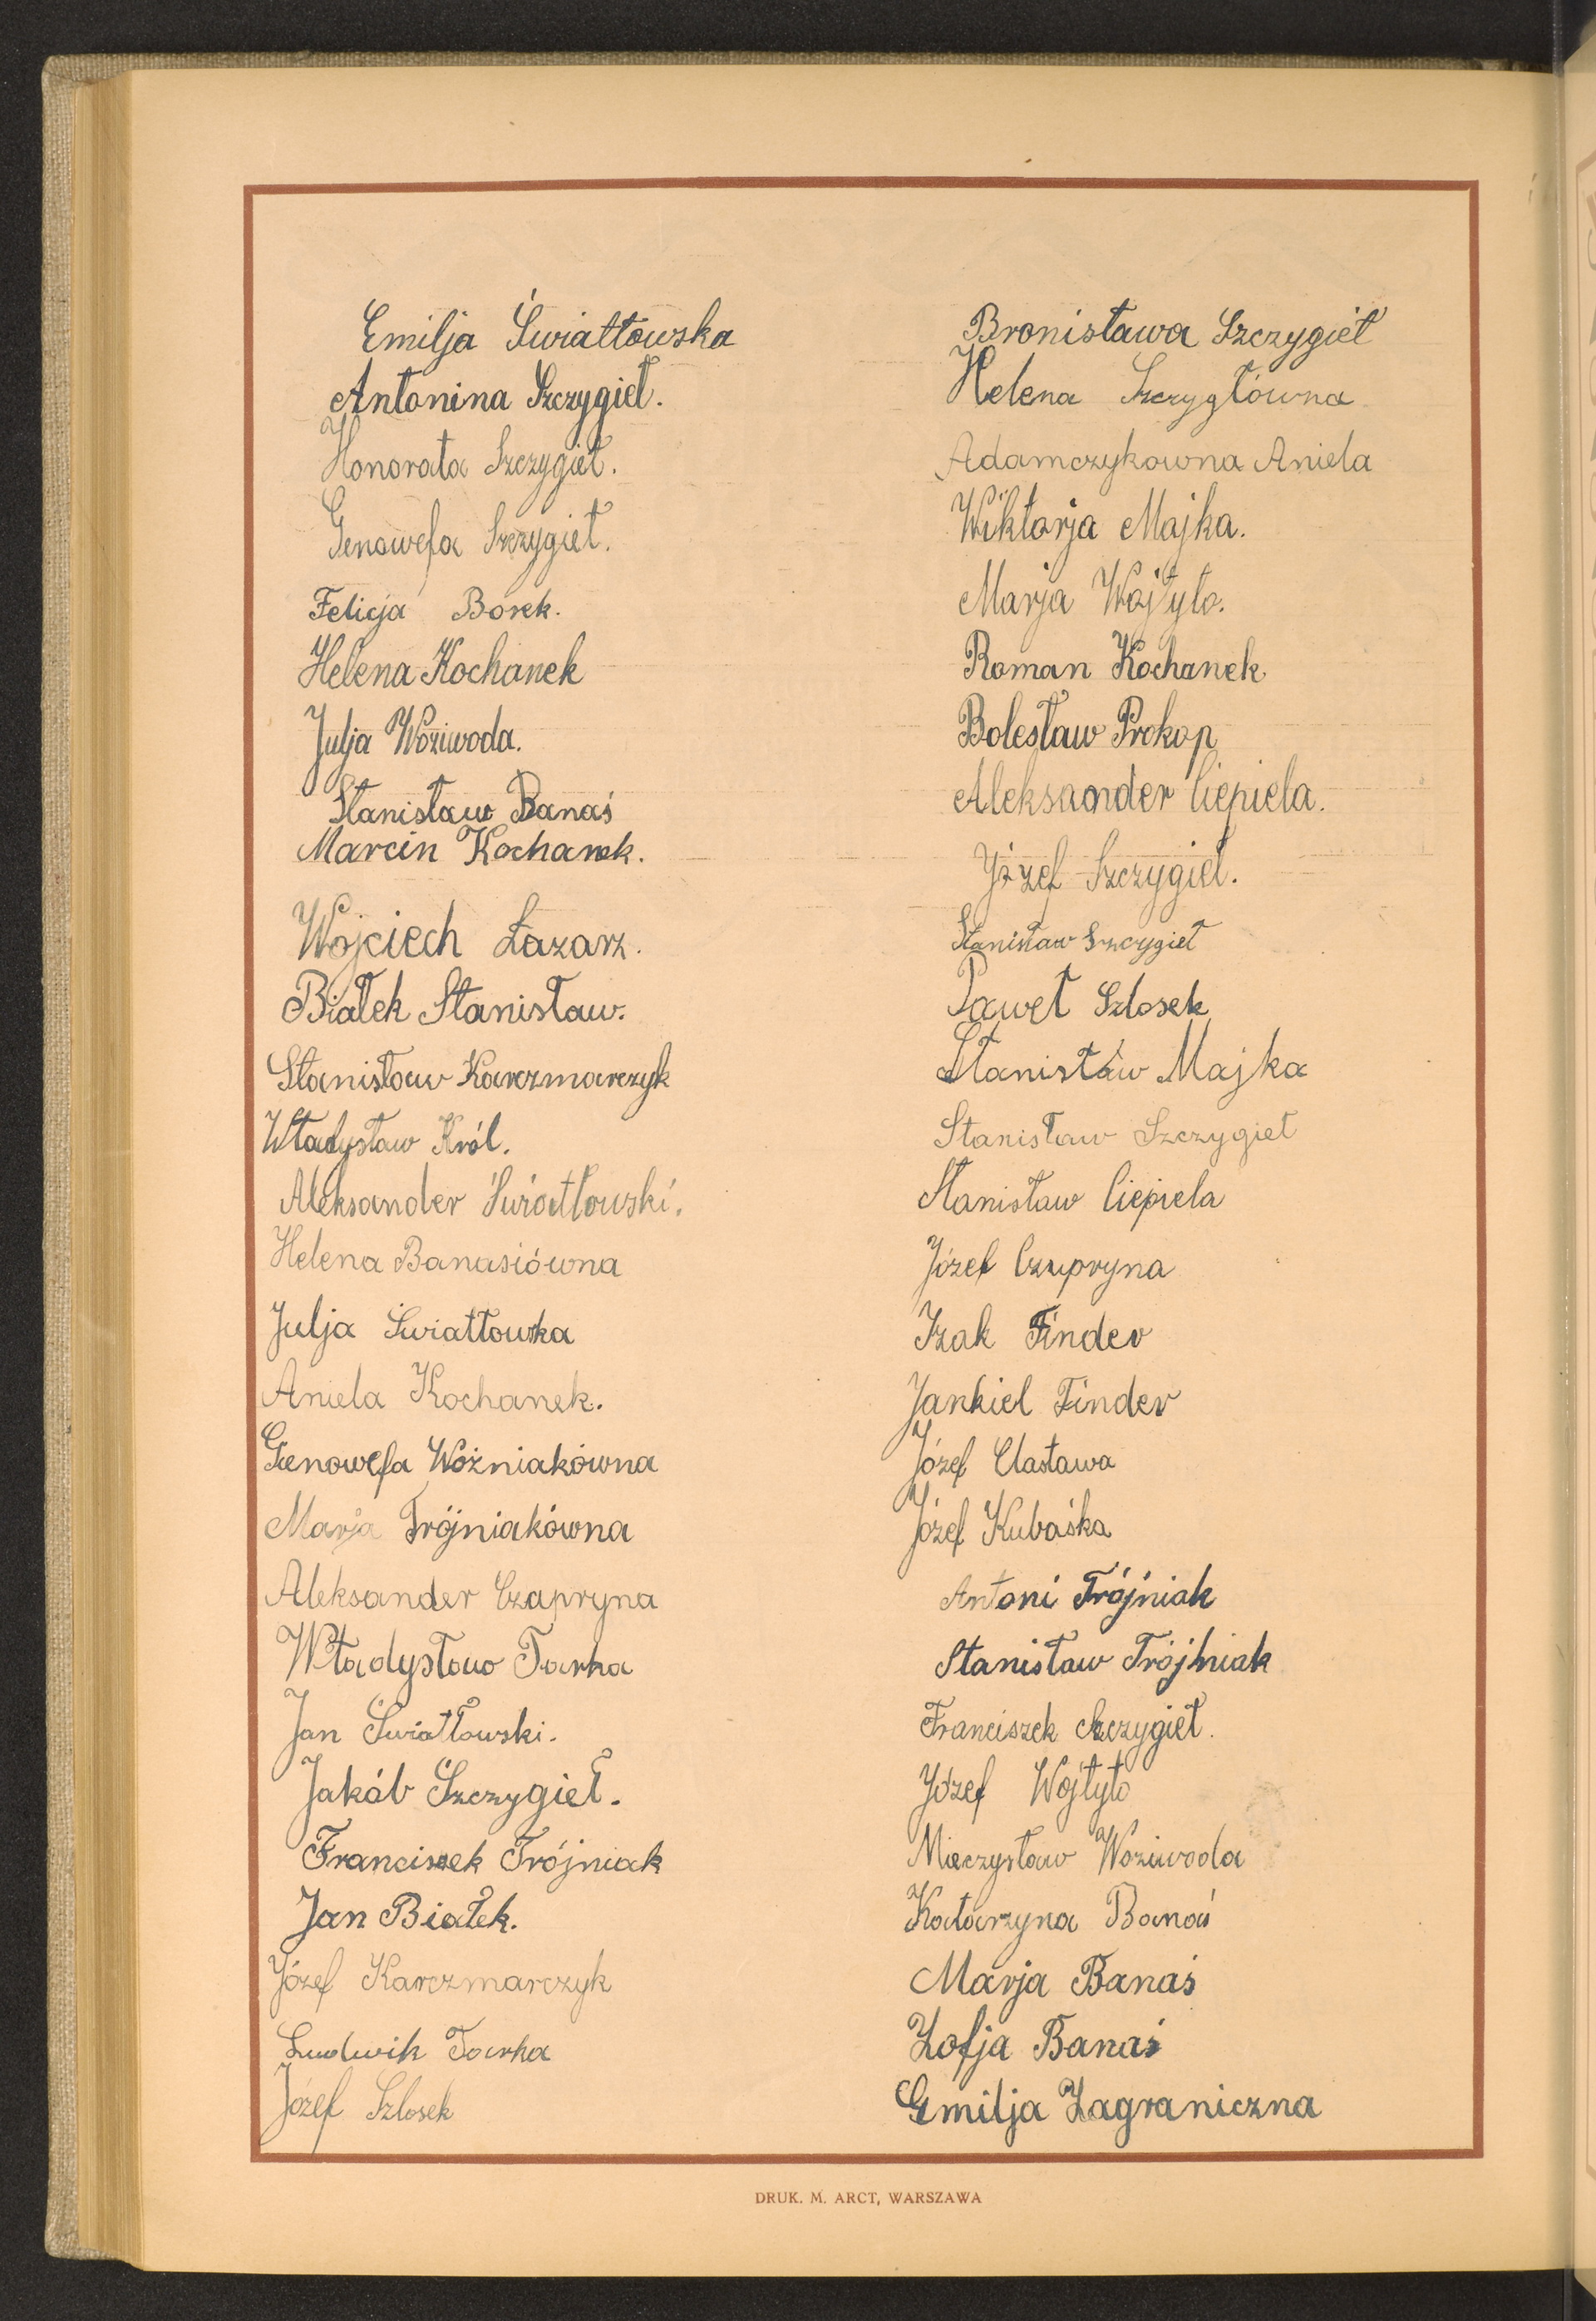 Emilja Światłowska
Antonina Szczygieł.
Honorata Szczygieł.
Genowefa Szczygieł.
Felicja Borek.
Helena Kochanek
Julja Woźiwoda.
Stanisław Banaś
Marcin Kochanek.
Wojciech Łazarz.
Białek Stanisław.
Stanisław Karczmarczyk
Władysław Król.
Aleksander Światłowski.
Helena Banasiówna
Julja Światłowska
Aniela Kochanek.
Gienowefa Woźniakówna
Marja Trójniakówna
Aleksander Czapryna
Władysław Tarka
Jan Światłowski.
Jakób Szczygieł.
Franciszek Trójniak
Jan Białek.
Józef Karczmarczyk
Ludwik Tarka
Józef Szlosek
Bronisława Szczygieł
Helena Szczygłówna
Adamczykowna Aniela
Wiktorja Majka.
Marja Wojtyło.
Roman Kochanek
Bolesław Prokop
Aleksander Ciepiela.
Józef Szczygieł.
Stanisław Szczygieł
Paweł Szlosek
Stanisław Majka
Stanisław Szczygieł
Stanisław Ciepiela
Józef Czupryna
Izak Finder
Jankiel Finder
Józef
Józef Kubaśka
Antoni Trójniak
Stanisław Trójniak
Franciszek Szczygieł.
Józef Wojtyło
Mieczysław Woziwoda
Katarzyna Banaś
Marja Banaś
Zofja Banaś
Emilja Zagraniczna
DRUK. M. ARCT, WARSZAWA